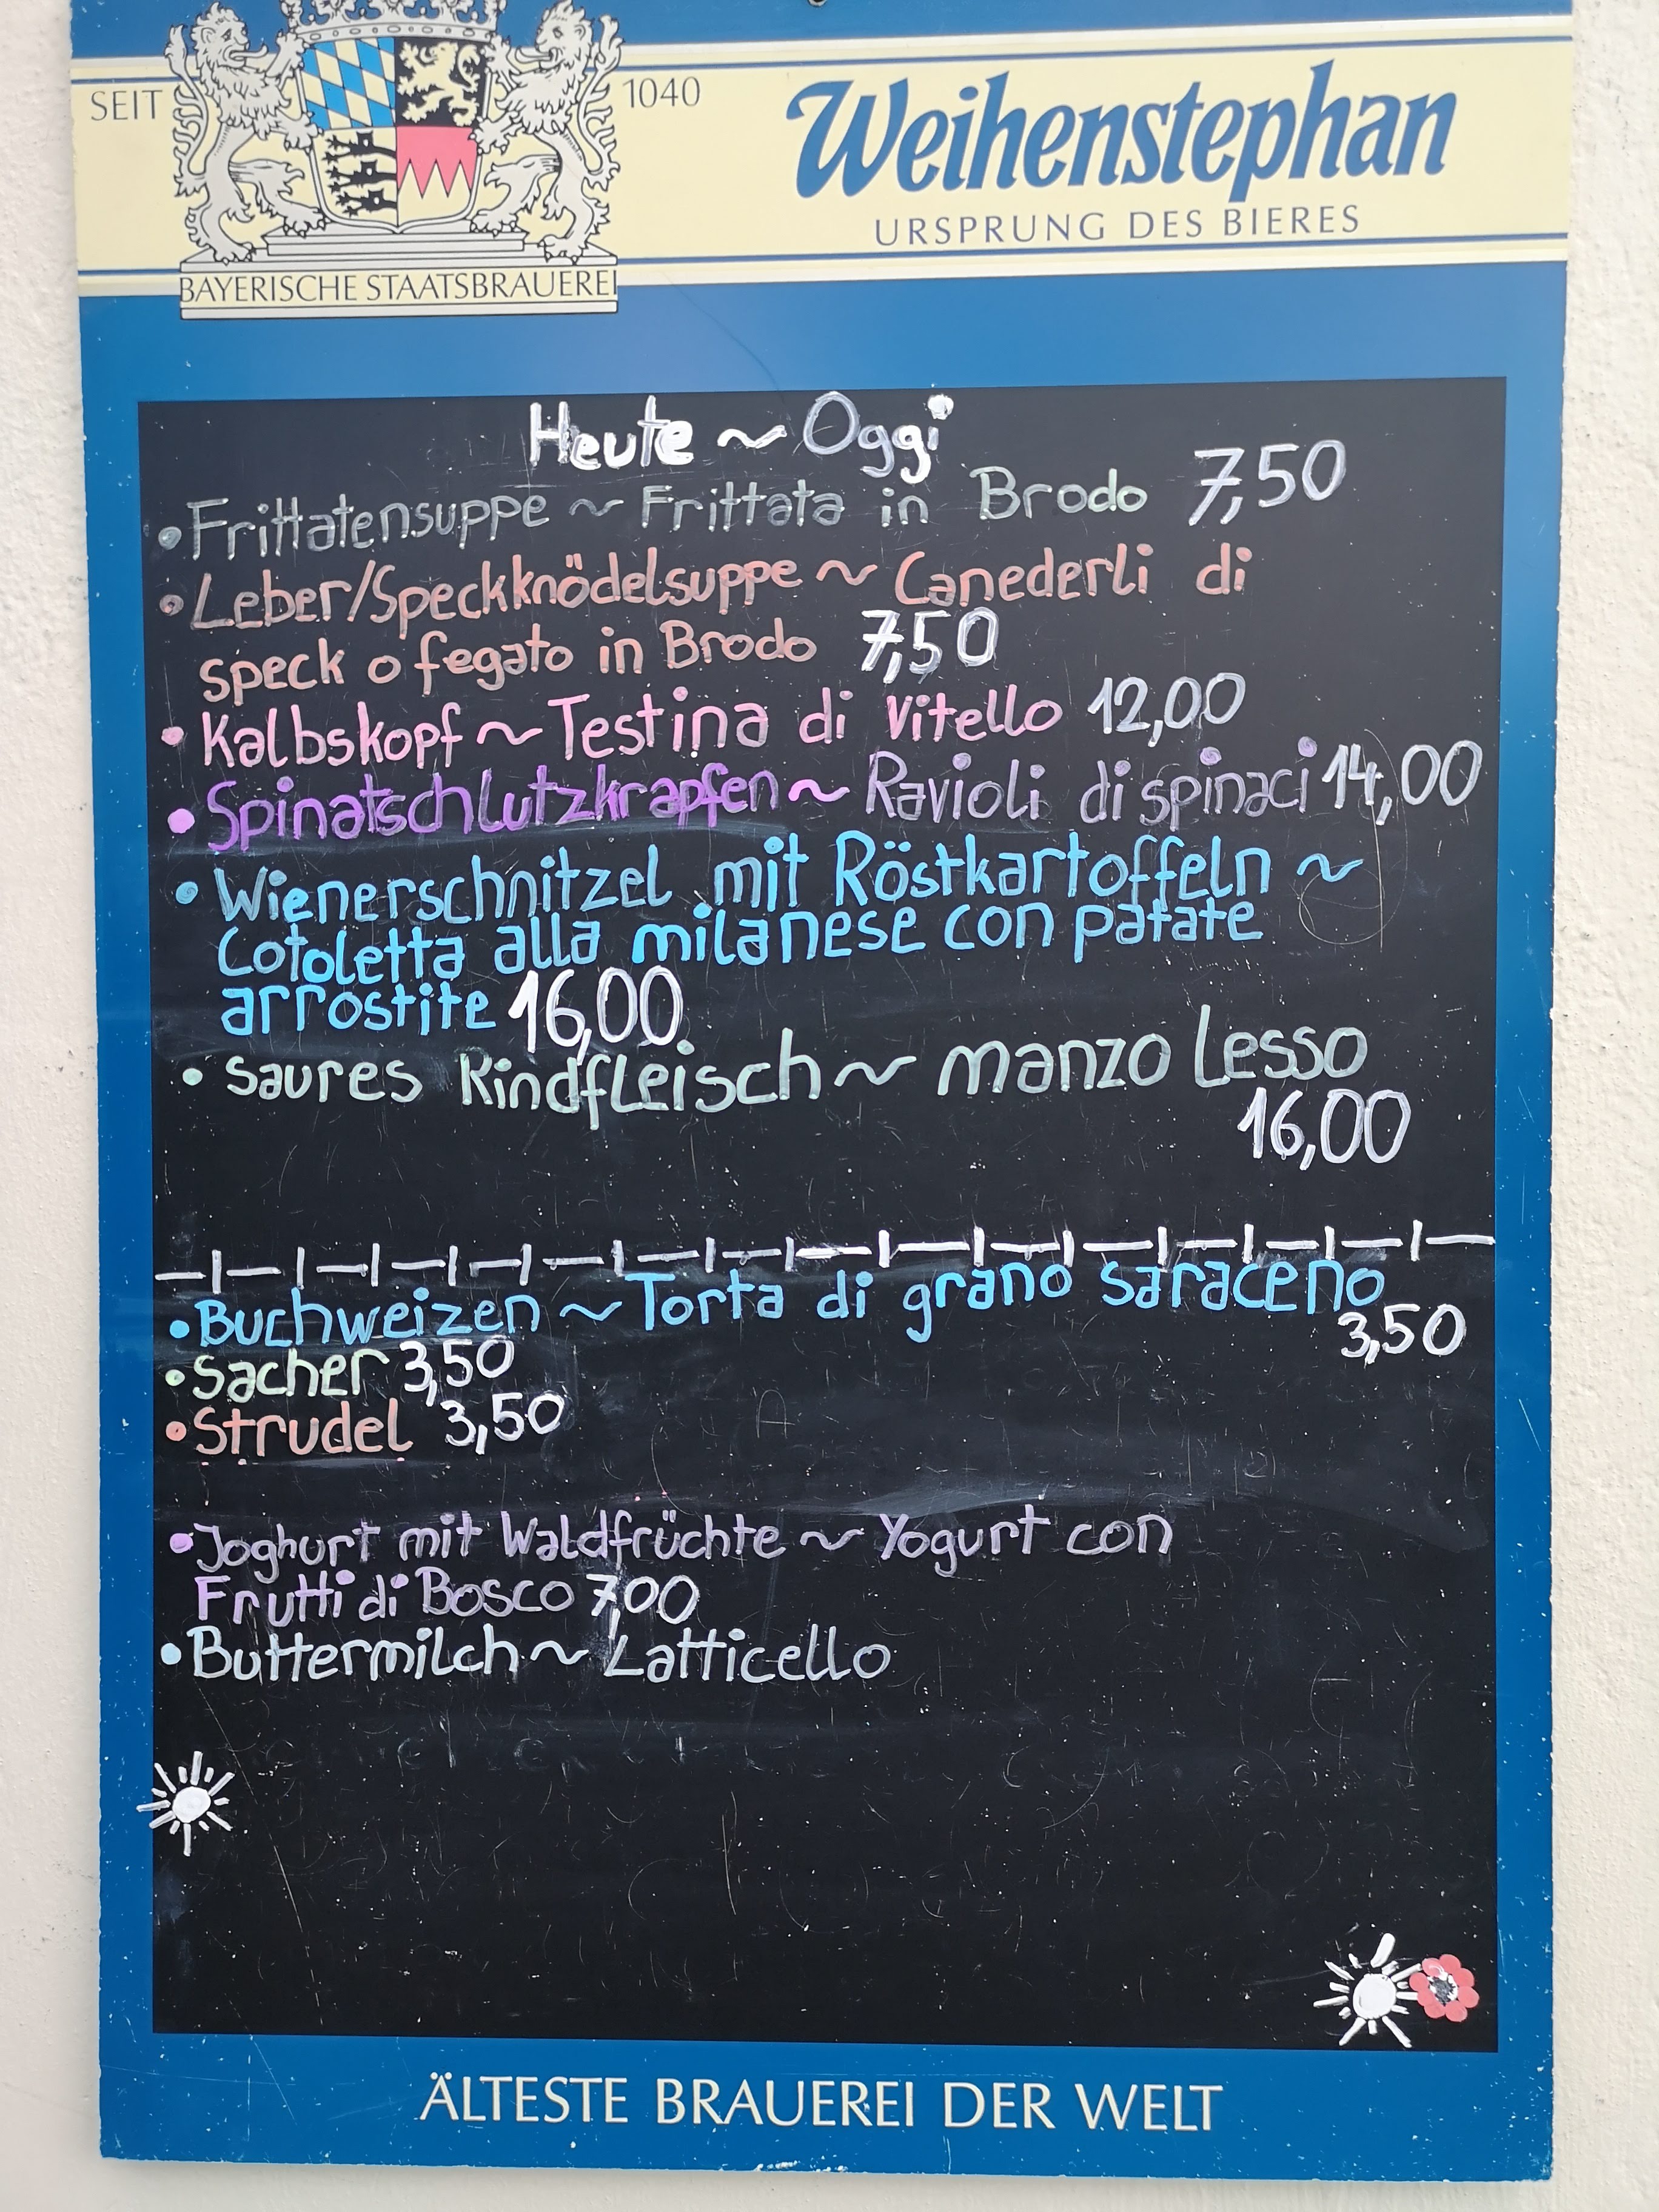 SEIT 1040
Weihenstephan
URSPRUNG DES BIERES
BAYERISCHE STAATSBRAUEREI
Heute ~ Oggi
• Frittatensuppe ~ Frittata in Brodo 7,50
• Leber/Speckknödelsuppe ~ Canederli di
speck o fegato in Brodo 7,50
• Kalbskopf ~ Testina di Vitello 12,00
• Spinatschlutzkrapfen ~ Ravioli di spinaci 14,00
• Wienerschnitzel mit Röstkartoffeln ~
Cotoletta alla milanese con patate
arrostite 16,00
• Saures Rindfleisch ~ manzo lesso
16,00
• Buchweizen ~ Torta di grano saraceno
3,50
• Sacher 3,50
• Strudel 3,50
• Joghurt mit Waldfrüchte ~ Yogurt con
Frutti di Bosco 7,00
• Buttermilch ~ Latticello
ÄLTESTE BRAUEREI DER WELT